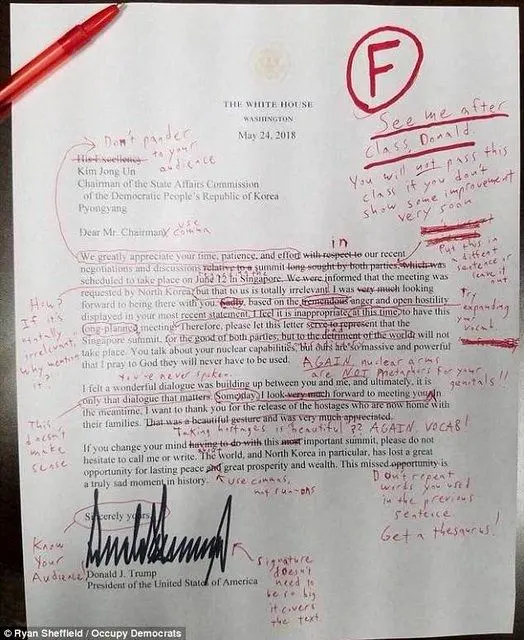 F
See me after
class, Donald.
You will not pass this
class if you don't
show some improvement
very soon
THE WHITE HOUSE
WASHINGTON
May 24, 2018
Don't pander
to your
audience
His Excellency
Kim Jong Un
Chairman of the State Affairs Commission
of the Democratic People's Republic of Korea
Pyongyang
Dear Mr. Chairman:
use
comma
in
We greatly appreciate your time, patience, and effort with respect to our recent
negotiations and discussions relative to a summit long sought by both parties, which was
scheduled to take place on June 12 in Singapore. We were informed that the meeting was
requested by North Korea, but that to us is totally irrelevant. I was very much looking
forward to being there with you. Sadly, based on the tremendous anger and open hostility
displayed in your most recent statement, I feel it is inappropriate, at this time, to have this
long-planned meeting. Therefore, please let this letter serve to represent that the
Singapore summit, for the good of both parties, but to the detriment of the world, will not
take place. You talk about your nuclear capabilities, but ours are so massive and powerful
that I pray to God they will never have to be used.
Put this in
a different
sentence or
take it out
How?
If it's
totally
irrelevant,
why mention
it.
Try
expanding
your
vocab
AGAIN, nuclear arms
are NOT metaphors for your
genitals!!
You've never spoken.
I felt a wonderful dialogue was building up between you and me, and ultimately, it is
only that dialogue that matters. Someday, I look very much forward to meeting you. In
the meantime, I want to thank you for the release of the hostages who are now home with
their families. That was a beautiful gesture and was very much appreciated.
Taking hostages is beautiful?? AGAIN. VOCAB!
This
doesn't
make
sense
If you change your mind having to do with this most important summit, please do not
hesitate to call me or write. The world, and North Korea in particular, has lost a great
opportunity for lasting peace and great prosperity and wealth. This missed opportunity is
a truly sad moment in history.
use commas,
not run-ons
Don't repeat
words you used
in the previous
sentence
Get a thesaurus!
Sincerely yours,
Know
Your
Audience!
Donald J. Trump
President of the United States of America
Signature
doesn't
need to
be so big
it covers
the text
© Ryan Sheffield / Occupy Democrats